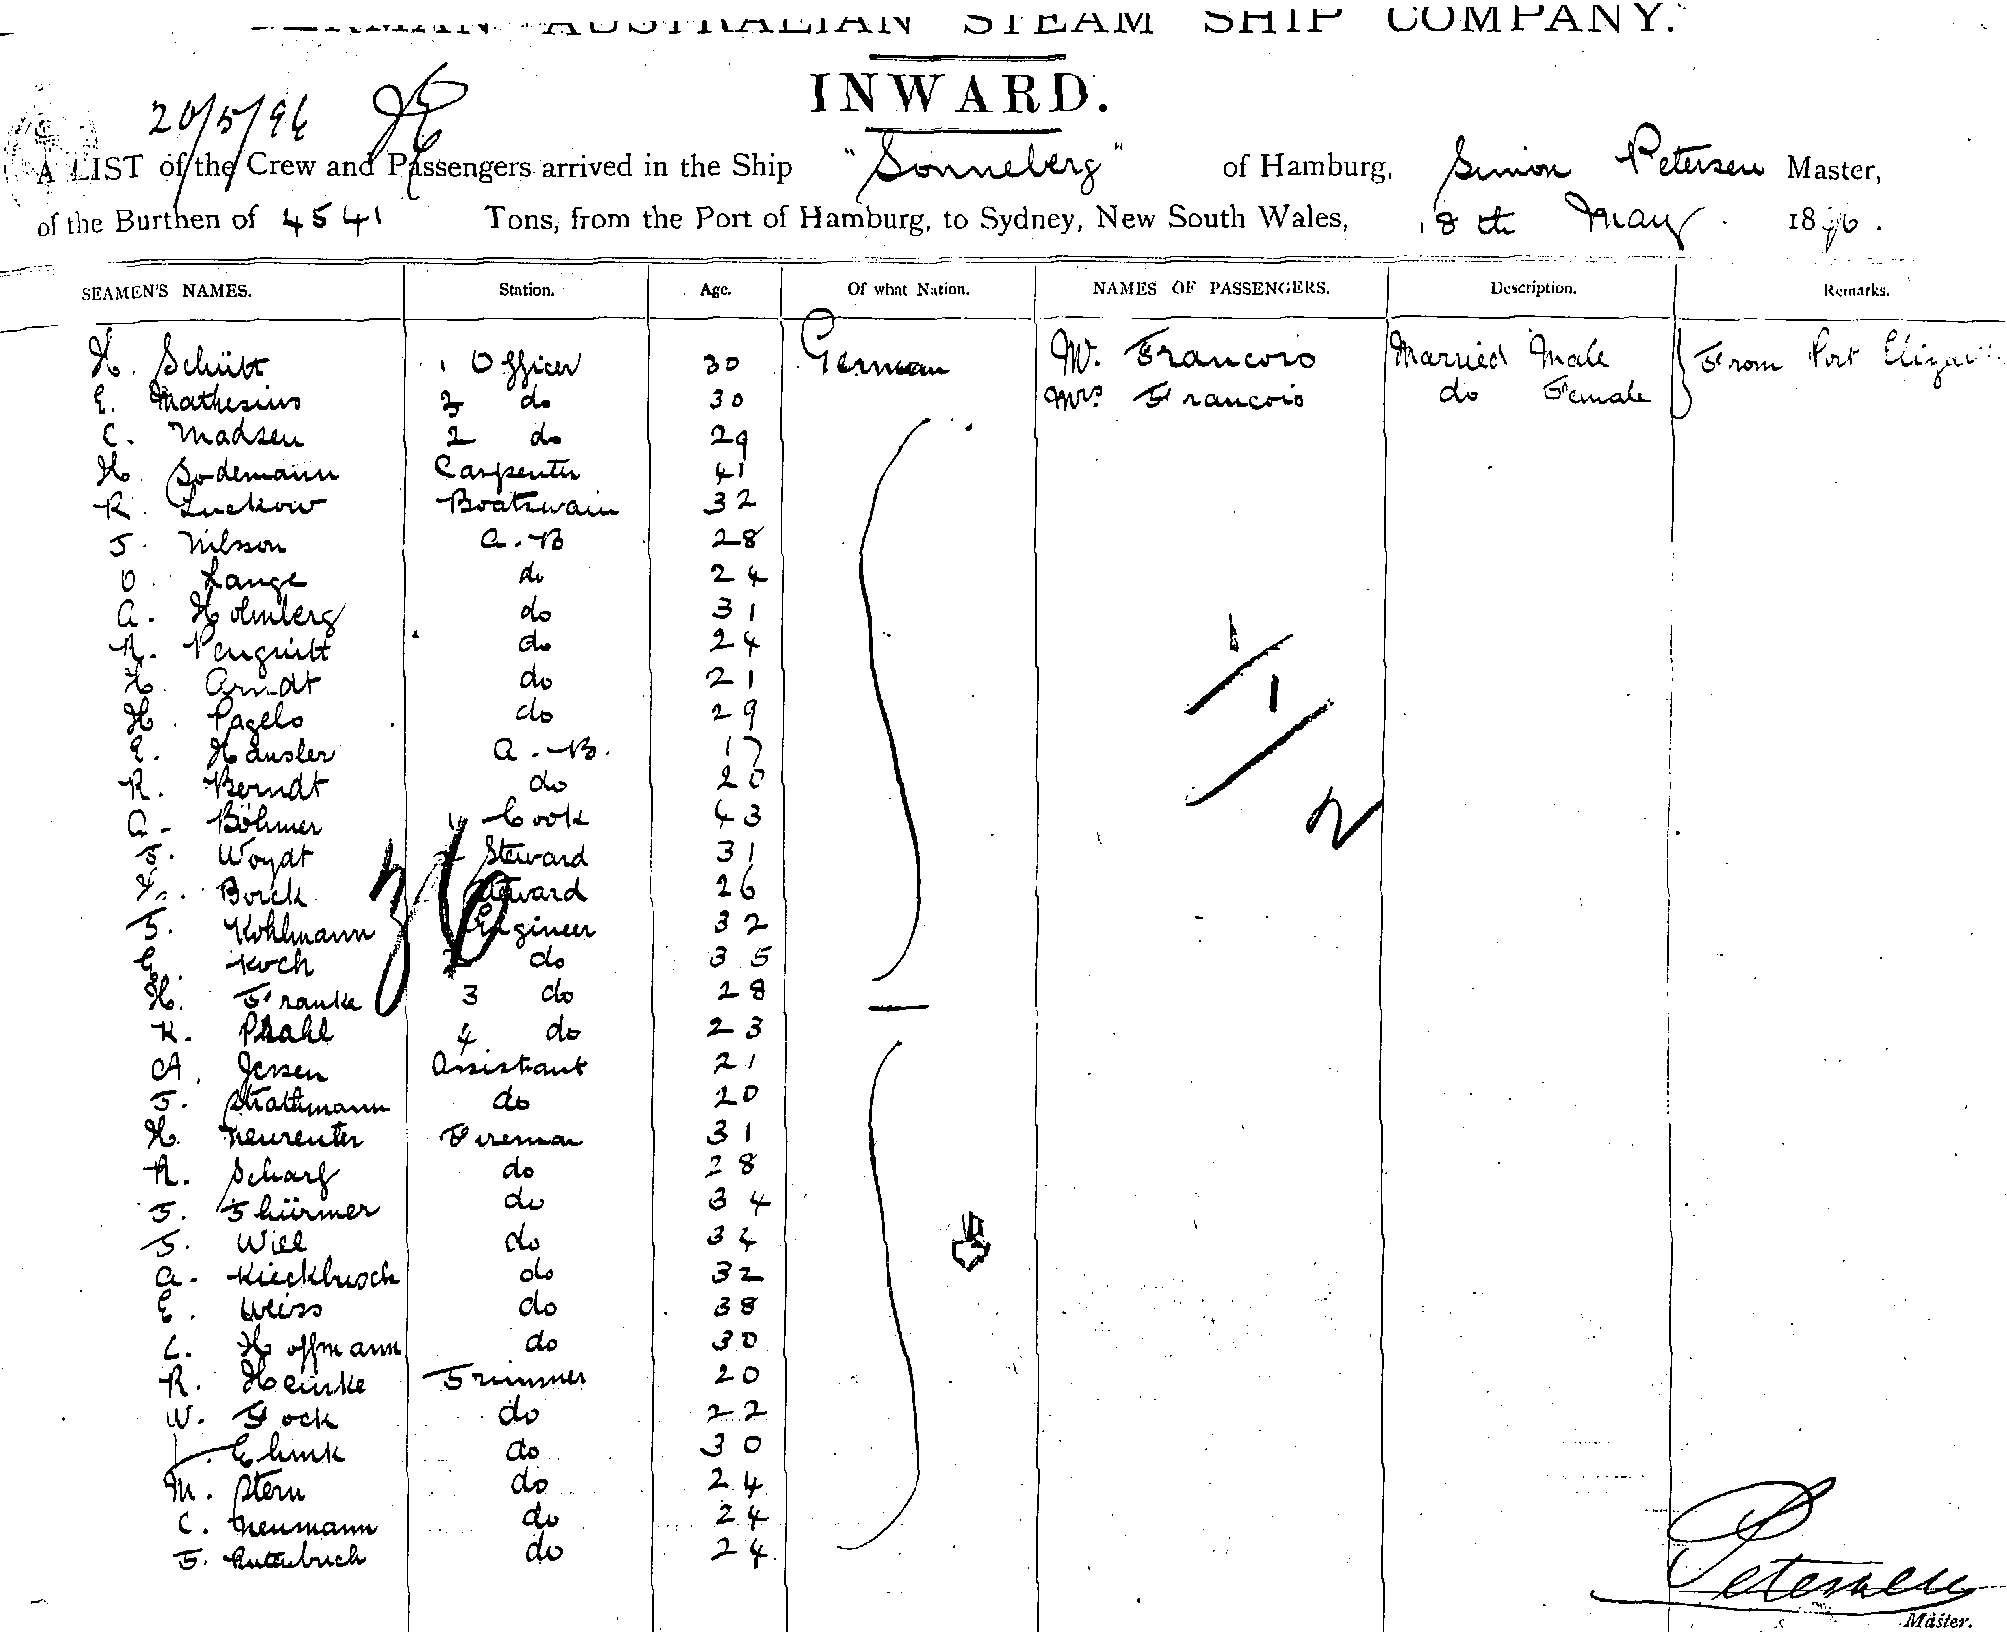 GERMAN AUSTRALIAN STEAM SHIP COMPANY.
INWARD.
20/5/96
A LIST of the Crew and Passengers arrived in the Ship "Sonneberg" of Hamburg, Simon Petersen Master,
of the Burthen of 4541 Tons, from the Port of Hamburg, to Sydney, New South Wales, 18th May 1896.
SEAMEN'S NAMES. Station. Age. Of what Nation. NAMES OF PASSENGERS. Description. Remarks.
H. Schütt 1 Officer 30 German W. Francois Married Male From Port Elizab
E. Mathesius 2 do 30 Mrs Francois do Female
C. Madsen 2 do 29
H. Sodemann Carpenter 41
R. Luckow Boatswain 32
J. Nilsson A.B 28
O. Lange do 24
A. Holmberg do 31
R. Penquitt do 24
H. Arndt do 21
H. Pagels do 29
E. Häusler A.B. 17
R. Berndt do 20
A. Böhmer 1 Cook 43
J. Woydt Steward 31
Borck Steward 26
J. Kohlmann Engineer 32
G. Koch 2 do 35
H. Franke 3 do 28
K. Prahl 4 do 23
A. Jessen Assistant 21
J. Strathmann do 20
H. Neureuter Fireman 31
R. Scharf do 28
J. Thürmer do 34
J. Will do 34
A. Kieckbusch do 32
E. Weiss do 38
C. Hoffmann do 30
R. Heinke Trimmer 20
W. Fock do 22
Ehmk do 30
M. Stern do 24
C. Neumann do 24
J. do 24
1/
1/
2
36
Petersen
Master.